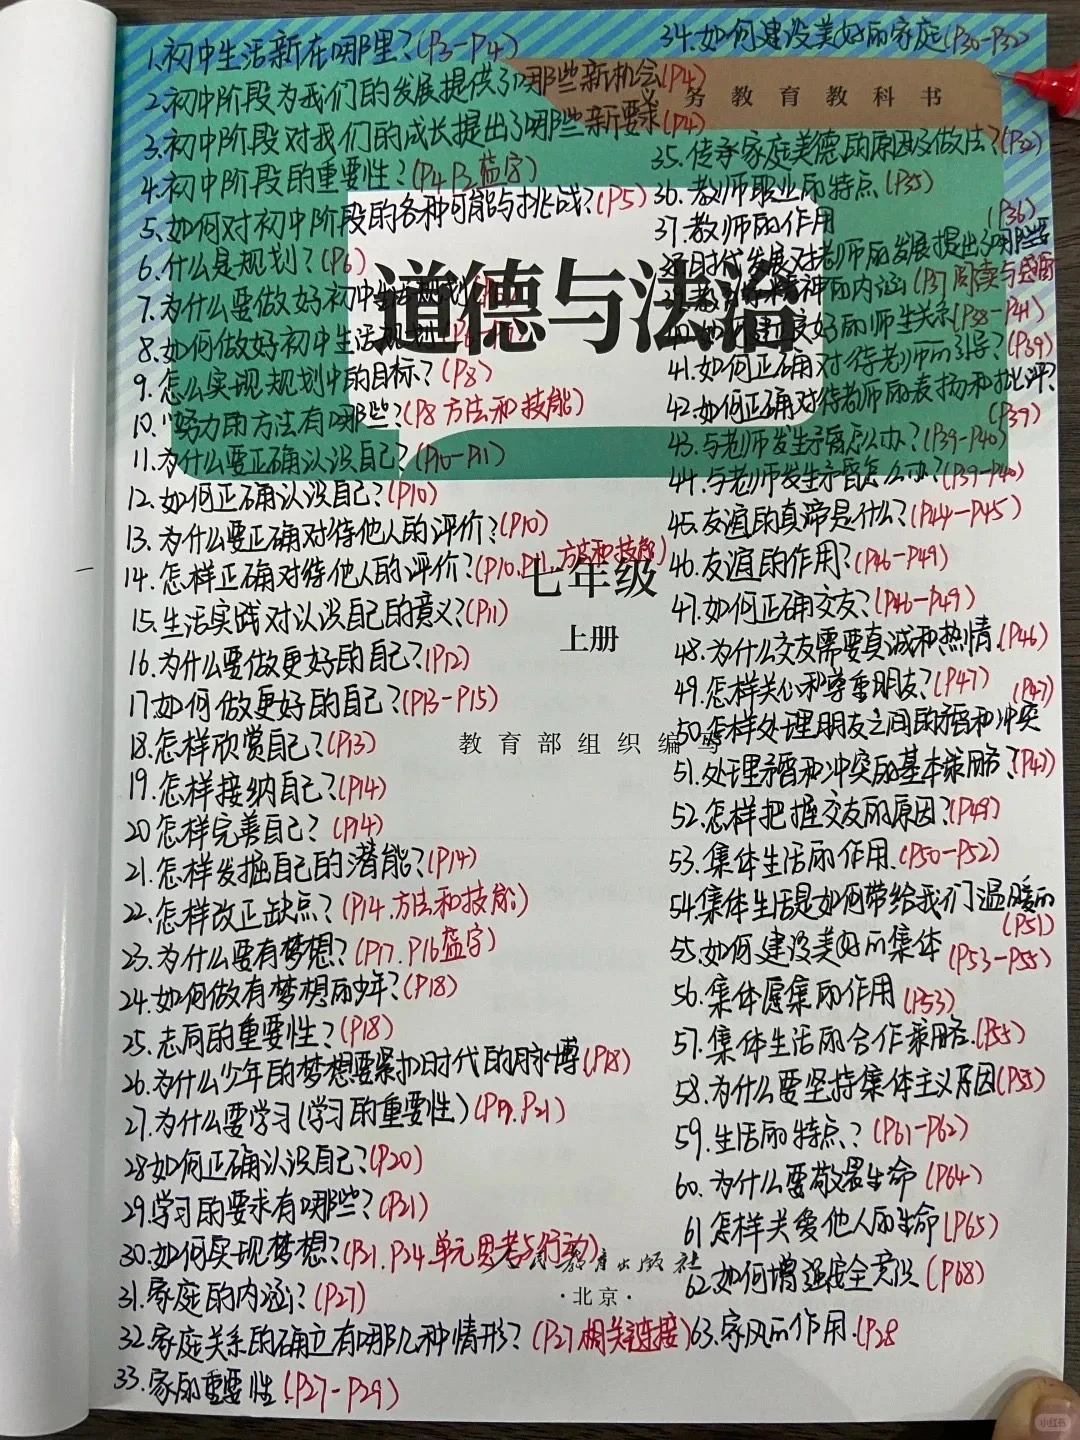 1.初中生活新在哪里?(P3-P4)
2.初中阶段为我们的发展提供了哪些新机会(P4)
3.初中阶段对我们的成长提出了哪些新要求(P4)
4.初中阶段的重要性?(P4 P3蓝字)
5.如何对初中阶段的各种可能与挑战?(P5)
6.什么是规划?(P6)
7.为什么要做好初中生活规划
8.如何做好初中生活规划
9.怎么实现规划中的目标?(P8)
10."努力的方法有哪些?(P8 方法和技能)
11.为什么要正确认识自己?(P10-P11)
12.如何正确认识自己?(P10)
13.为什么要正确对待他人的评价?(P10)
14.怎样正确对待他人的评价?(P10.P11.方法和技能)
15.生活实践对认识自己的意义?(P11)
16.为什么要做更好的自己?(P12)
17.如何做更好的自己?(P13-P15)
18.怎样欣赏自己?(P13)
19.怎样接纳自己?(P14)
20怎样完善自己?(P14)
21.怎样发掘自己的潜能?(P14)
22.怎样改正缺点?(P14.方法和技能)
23.为什么要有梦想?(P17.P16蓝字)
24.如何做有梦想的少年?(P18)
25.志向的重要性?(P18)
26.为什么少年的梦想要紧扣时代的脉博(P18)
27.为什么要学习(学习的重要性)(P19.P21)
28如何正确认识自己?(P20)
29.学习的要求有哪些?(P21)
30.如何实现梦想?(P21.P24.单元思考与行动)
31.家庭的内涵?(P27)
32.家庭关系的确立有哪几种情形?(P27相关链接)
33.家的重要性(P27-P29)
34.如何建设美好的家庭(P30-P32)
35.传承家庭美德的原因及做法?(P32)
36.教师职业的特点(P35)
37.教师的作用(P36)
时代发展对老师的发展提出了哪些要
精神的内涵(P37阅读与感悟
好的师生关系(P38-P41)
41.如何正确对待老师的引导?(P39)
42.如何正确对待老师的表扬和批评?
(P39)
43.与老师发生矛盾怎么办?(P39-P40)
44.与老师发生矛盾怎么办?(P39-P40)
45.友谊的真谛是什么?(P44-P45)
46.友谊的作用?(P46-P49)
47.如何正确交友?(P46-P49)
48.为什么交友需要真诚和热情.(P46)
49.怎样关心和尊重朋友?(P47)
50.怎样处理朋友之间的矛盾和冲突(P47)
51.处理矛盾和冲突的基本策略?(P47)
52.怎样把握交友的原因?(P49)
53.集体生活的作用.(P50-P52)
54.集体生活是如何带给我们温暖的
(P51)
55.如何建设美好的集体(P53-P55)
56.集体愿集的作用(P53)
57.集体生活的合作策略.(P55)
58.为什么要坚持集体主义原因(P55)
59.生活的特点?(P61-P62)
60.为什么要敬畏生命(P64)
61怎样关爱他人的生命(P65)
62.如何增强安全意识(P68)
63.家风的作用.(P28
义务教育教科书
道德与法治
七年级
上册
教育部组织编写
人民教育出版社
·北京·
小红书